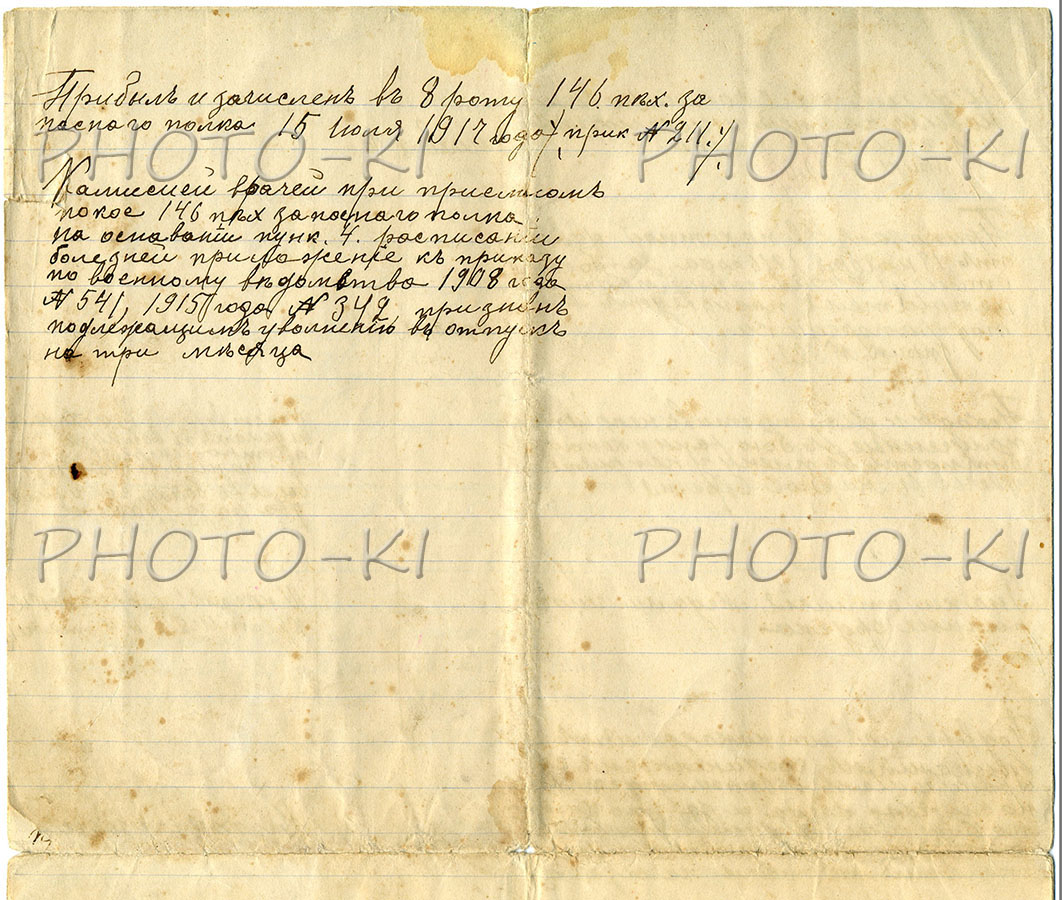 Прибылъ и зачисленъ въ 8 роту 146. пѣх. за
паснаго полка 15 июля 1917 года /прик № 211./
Камисией врачей при приемномъ
покое 146 пѣх запаснаго полка
на основании пунк. 4. росписании
болезней приложение къ приказу
по военному ведомства 1908 года
№ 541, 1915 года № 349, признанъ
подлежащимъ уволнению въ отпускъ
на три мѣсяца
PHOTO-KI PHOTO-KI
PHOTO-KI PHOTO-KI